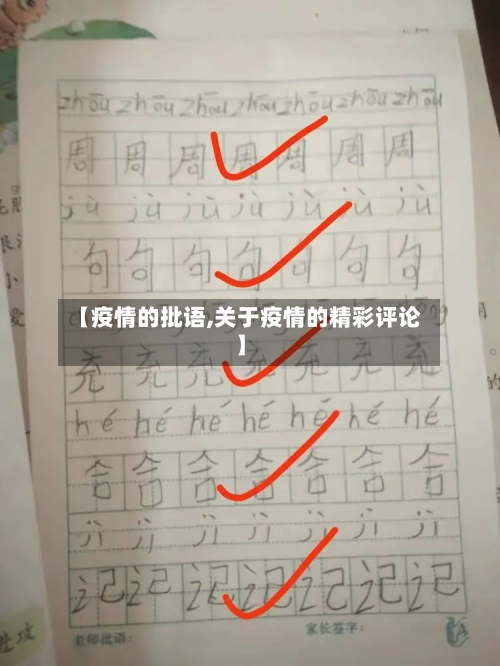 zhōu zhōu zhōu zhōu zhōu zhōu zhōu
周 周 周 周 周 周 周
jù jù jù jù jù jù jù
句 句 句 句 句 句 句
【疫情的批语,关于疫情的精彩评论
】
充 充 充 充 充 充 充
hé hé hé hé hé hé hé
合 合 合 合 合 合 合
jì jì jì jì jì jì jì
记 记 记 记 记 记 记
老师批语: 家长签字: